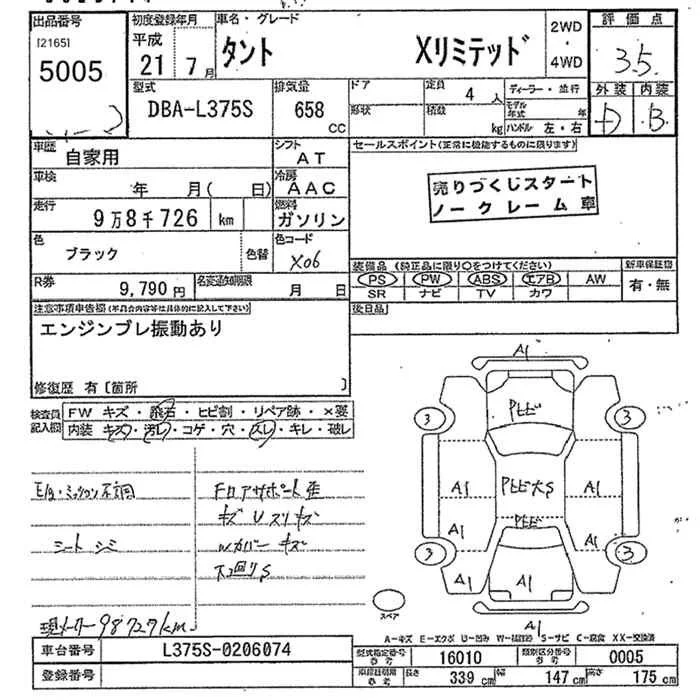 出品番号
[2165]
5005
初度登録年月
平成
21 7月
車名・グレード
タント Xリミテッド
2WD
・
4WD
評価点
3.5
外装 内装
D B
型式
DBA-L375S
排気量
658
CC
ドア
形状
定員
4人
積数
kg
ディーラー・並行
モデル年式 年
ハンドル 左・右
車歴
自家用
シフト
AT
セールスポイント(正常に機能するものに限ります)
売りづくしスタート
ノークレーム車
車検
年 月( 日)
冷房
AAC
走行
9万8千726 km
燃料
ガソリン
色
ブラック
色替
色コード
X06
R券
9,790円
名変通知期限
月 日
装備品(純正品に限り○をつけてください)
PS PW ABS エアB AW
SR ナビ TV カワ
新車保証書
有・無
後日品
注意事項申告欄(不具合内容等は具体的に記入して下さい)
エンジンブレ振動あり
修復歴 有[箇所 ]
検査員
記入欄
FW キズ・飛石・ヒビ割・リペア跡・×要
内装 キズ・汚レ・コゲ・穴・スレ・キレ・破レ
E/g・ミッション不調
シートシミ
フロアサポート歪
キズ U スリキズ
Wカバーキズ
下回りS
現メーター98727km
A1
3 3
A1 A1
A1 A1
3 3
A1 A1
A1
A1
スペア
A-キズ E-エクボ U-凹み S-サビ C-腐食 XX-交換済
車台番号
L375S-0206074
登録番号
型式指定番号
参考
16010
類別区分番号
参考
0005
参考
長さ 339cm
幅 147cm
高さ 175cm